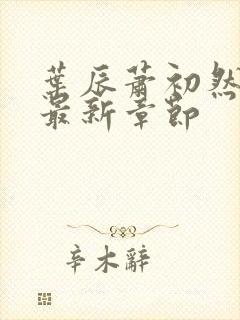 葉辰蕭初然
最新章節
辛木辭